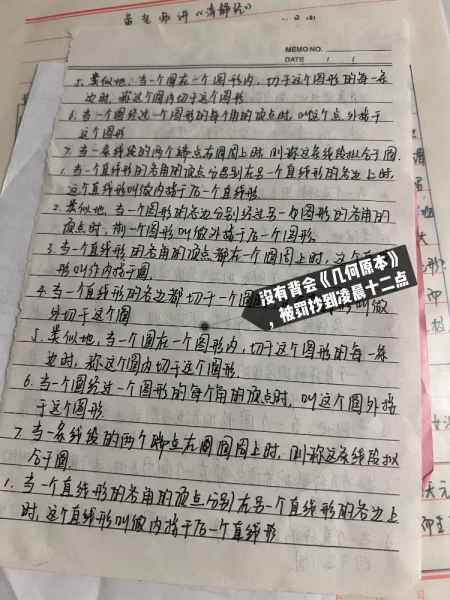 苗老师讲《清静经》
MEMO NO.
DATE / /
5. 类似地,当一个圆在一个图形内,切于这个图形的每一条
边时,称这个圆内切于这个图形
6. 当一个圆经过一个图形的每个角的顶点时,叫这个点外接于
这个图形
7. 当一条线段的两个端点在圆周上时,则称这条线段拟合于圆.
1. 当一个直线形的各角的顶点分别在另一个直线形的各边上时,
这个直线形叫做内接于后一个直线形.
2. 类似地,当一个图形的各边分别经过另一个图形的各角的
顶点时,前一个图形叫做外接于后一个图形.
3. 当一个直线形的各角的顶点都在一个圆周上时,这个
形叫作内接于圆
4. 当一个直线形的各边都切于一个圆
形叫做
外切于这个圆
没有背会《几何原本》
,被罚抄到凌晨十二点
5. 类似地,当一个圆在一个图形内,切于这个图形的每一条
边时,称这个圆内切于这个图形.
6. 当一个圆经过一个图形的每个角的顶点时,叫这个圆外接
于这个图形
7. 当一条线段的两个端点在圆圆周上时,则称这条线段拟
合于圆.
1. 当一个直线形的各角的顶点分别在另一个直线形的各边上
时,这个直线形叫做内接于后一个直线形